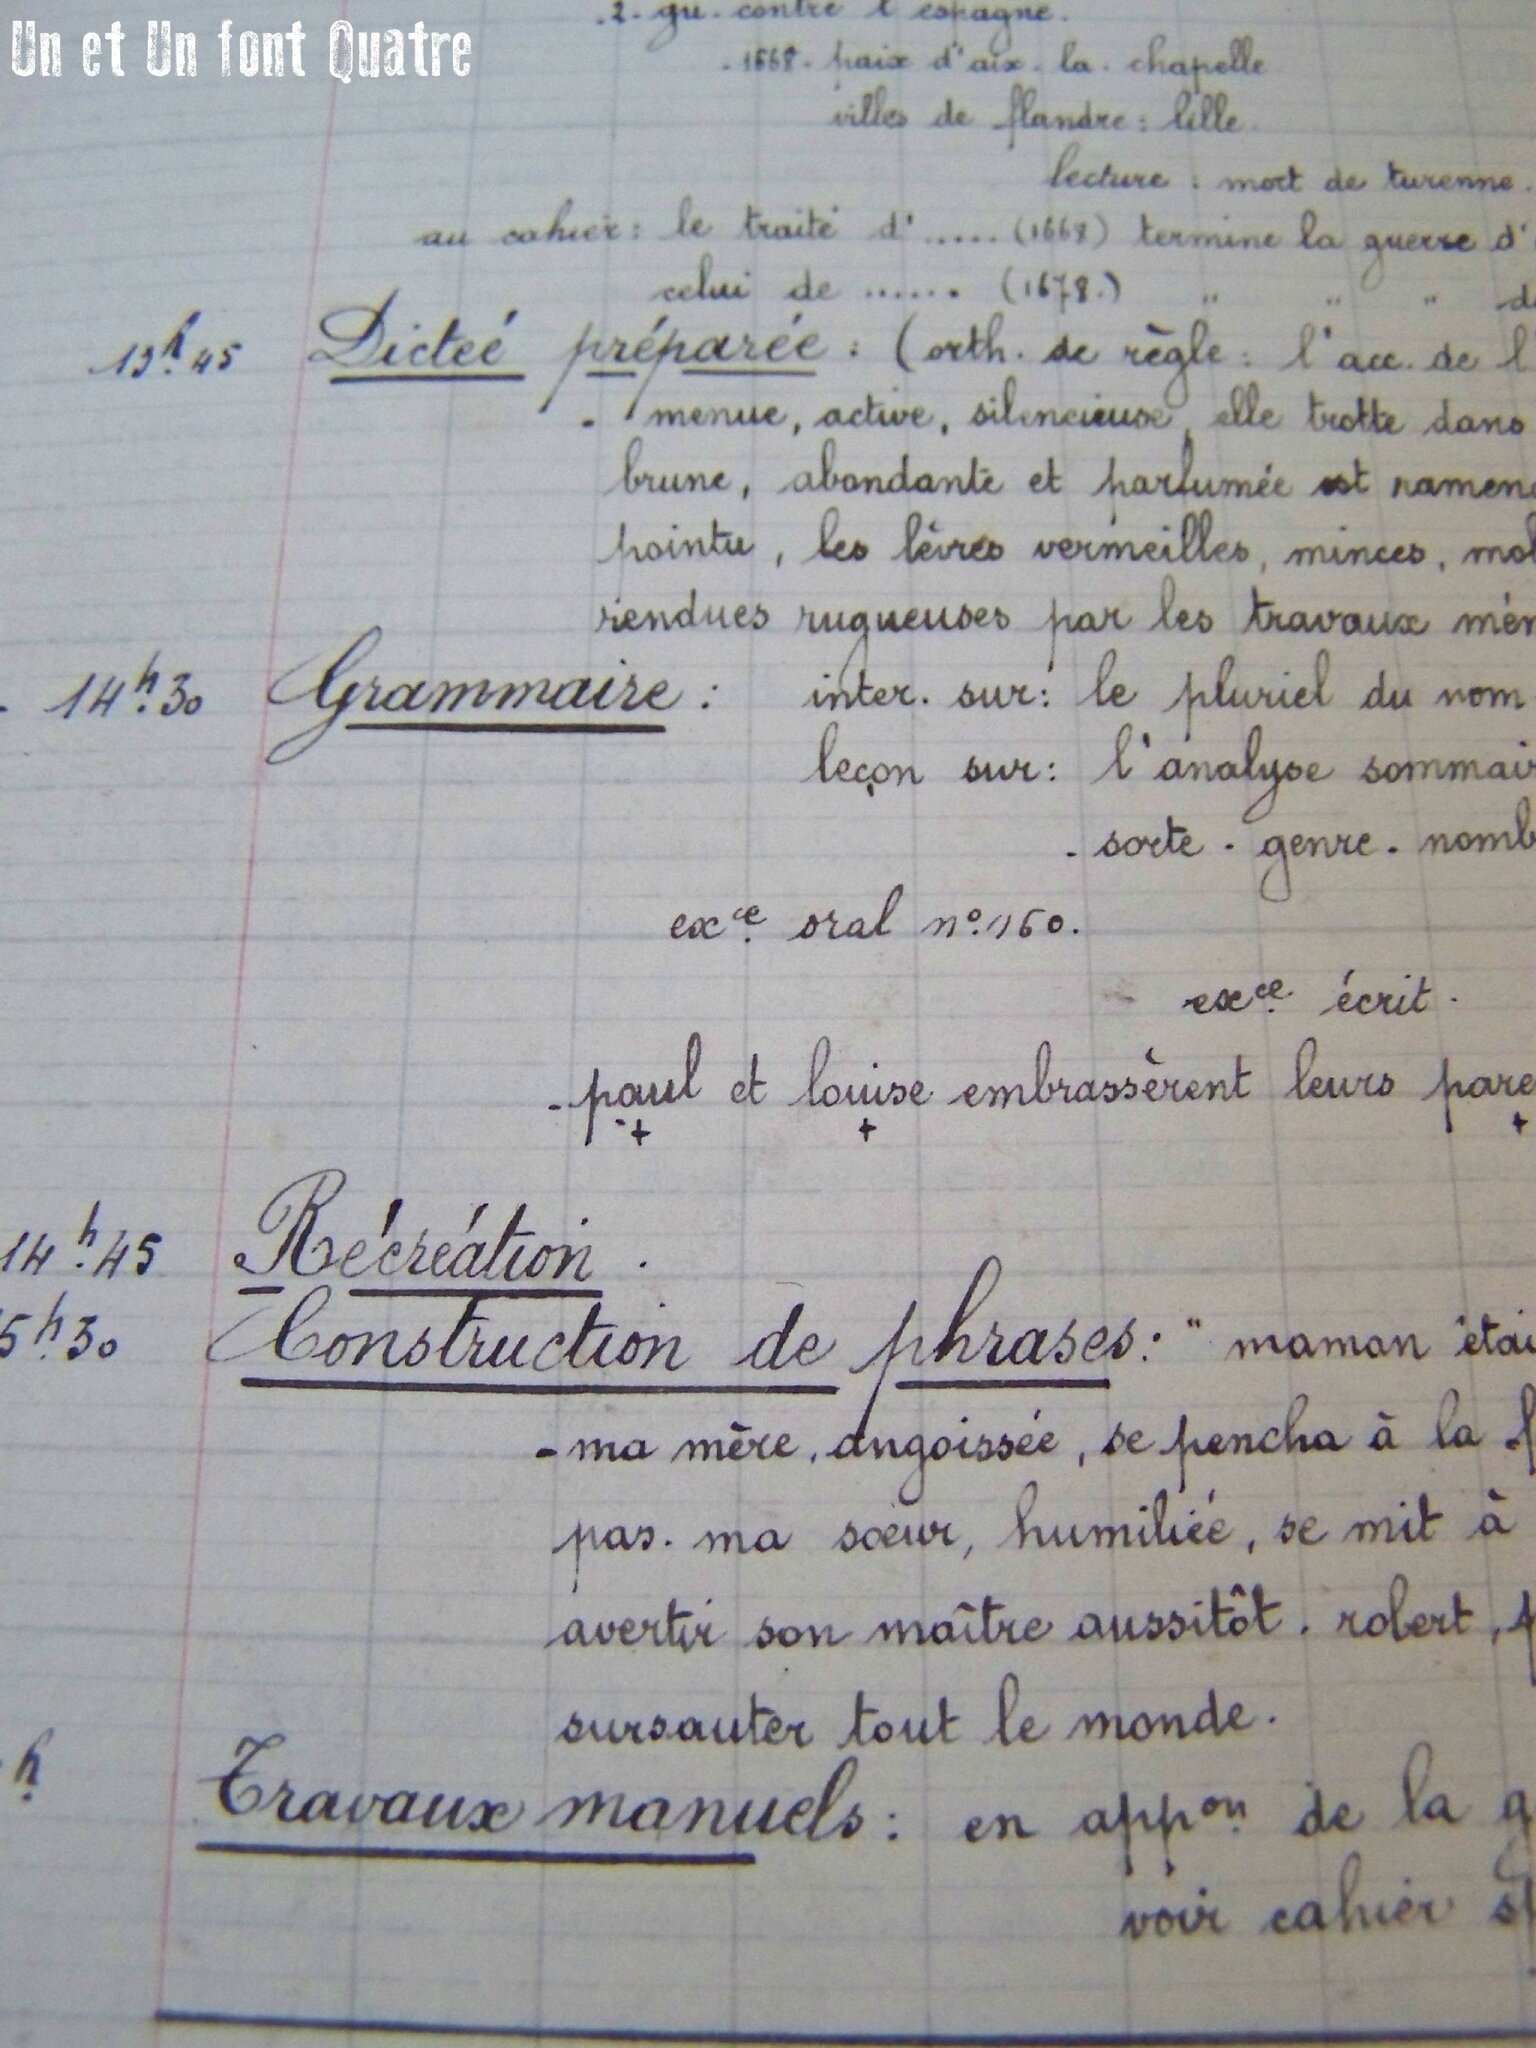 Un et Un font Quatre
.2. gu. contre l'espagne.
.1668. paix d'aix. la. chapelle
villes de flandre : lille.
lecture : mort de turenne.
au cahier : le traité d'..... (1668) termine la guerre d'
celui de ...... (1678.) " " " d
13h.45 Dicteé préparée : (orth. de règle : l'acc. de l'
. menue, active, silencieuse, elle trotte dans
brune, abondante et parfumée est ramené
pointu, les lèvres vermeilles, minces, mob
rendues rugueuses par les travaux mén
- 14h.30 Grammaire : inter. sur : le pluriel du nom
leçon sur : l'analyse sommair
. sorte . genre . nomb
exce. oral no.160.
exce. écrit.
- paul et louise embrassèrent leurs pare
+ + +
14h.45 Récréation .
5h.30 Construction de phrases : " maman étai
- ma mère, angoissée, se pencha à la f
pas. ma sœur, humiliée, se mit à
avertir son maître aussitôt. robert, f
sursauter tout le monde.
h. Travaux manuels : en appon. de la g
voir cahier sp